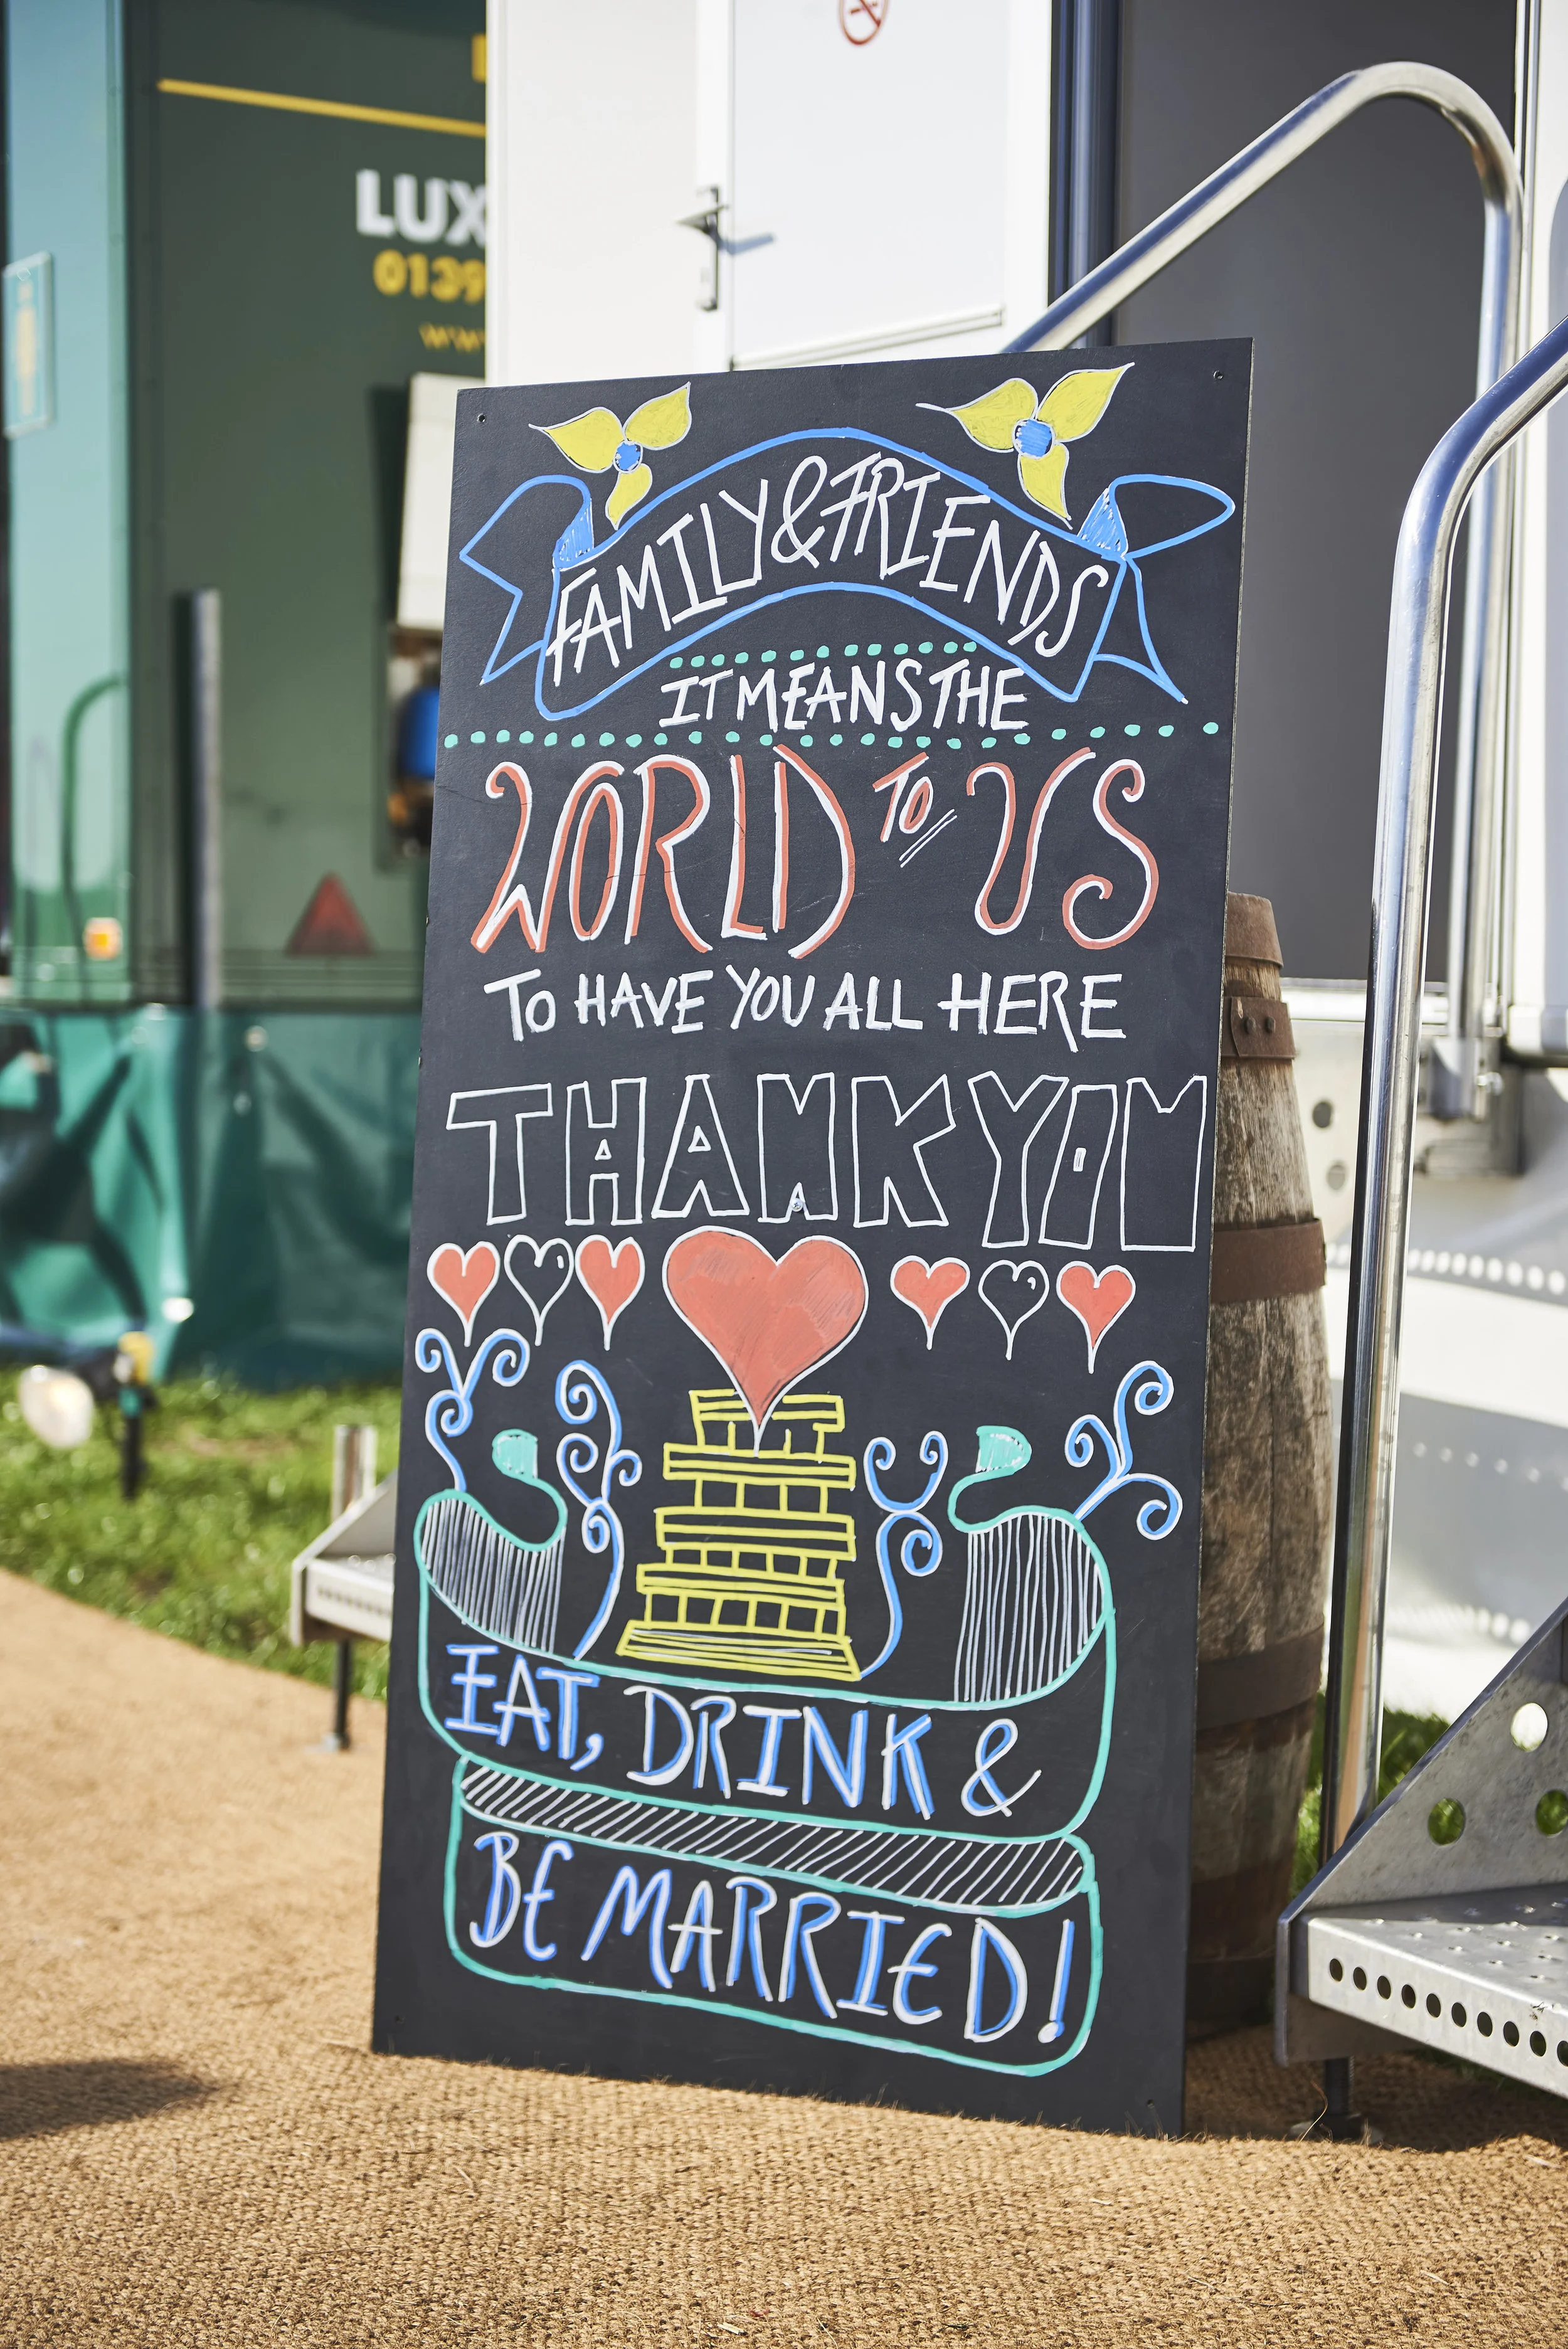 LUX
0139
www
FAMILY & FRIENDS
IT MEANS THE
WORLD TO US
TO HAVE YOU ALL HERE
THANK YOU
EAT, DRINK &
BE MARRIED!